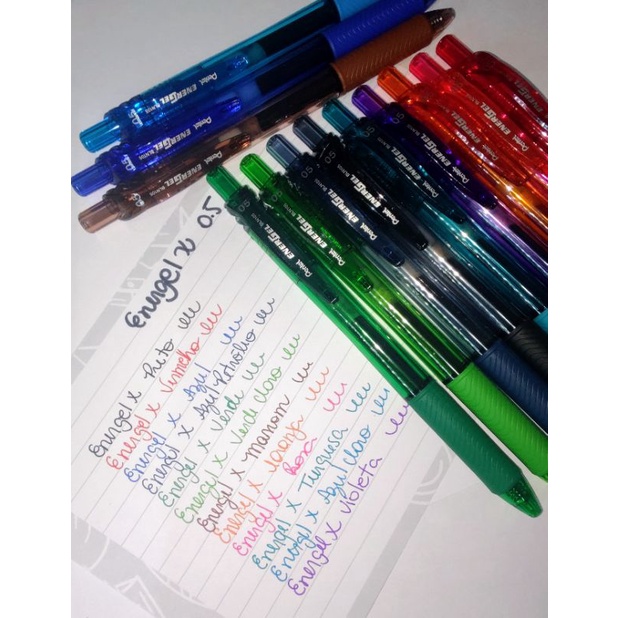 Energel x 0.5
Energel x Preto
Energel x Vermelho
Energel x Azul
Energel x Azul Petróleo
Energel x Verde
Energel x Verde claro
Energel x Marrom
Energel x laranja
Energel x Rosa
Energel x Turquesa
Energel x Azul claro
Energel x Violeta
Pentel ENERGEL 0.5
Pentel ENERGEL
Pentel ENERGEL
Pentel ENERGEL
Pentel ENERGEL
Pentel ENERGEL
Pentel ENERGEL
Pentel ENERGEL
Pentel ENERGEL